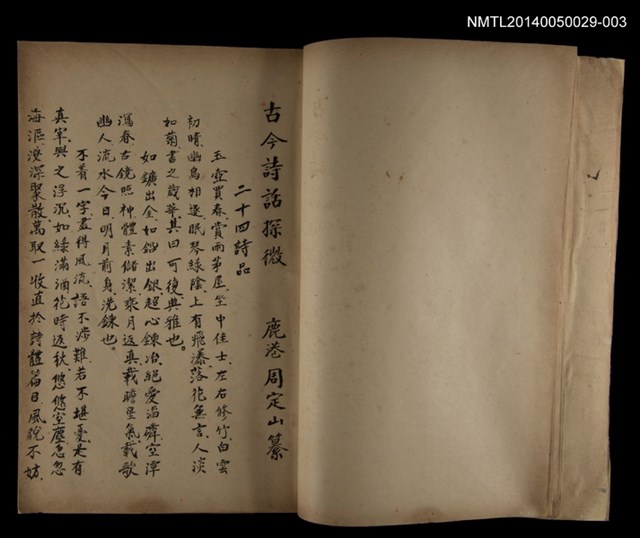 NMTL20140050029-003
古今詩話探微 鹿港 周定山纂
二十四詩品
玉壺買春、賞雨茅屋、坐中佳士、左右修竹、白雲
初晴、幽鳥相逐、眠琴綠陰、上有飛瀑、落花無言、人淡
如菊、書之歲華、其曰可復、典雅也。
如鑛出金、如鉛出銀、超心鍊冶、絕愛淄磷、空潭
瀉春、古鏡照神、體素儲潔、乘月返真、載瞻星氣、載歌
幽人、流水今日、明月前身、洗鍊也。
不著一字、盡得風流、語不涉難、若不堪憂、是有
真宰、與之浮沉、如綠滿酒、花時返秋、悠悠空塵、忽忽
海漚、淺深聚散、萬取一收、直於詩體篇目、風貌不妨